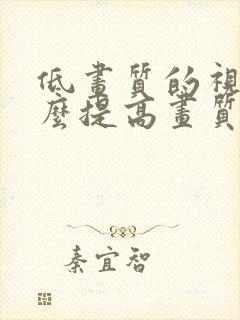 低畫質的視
麼提高畫質
秦宜智